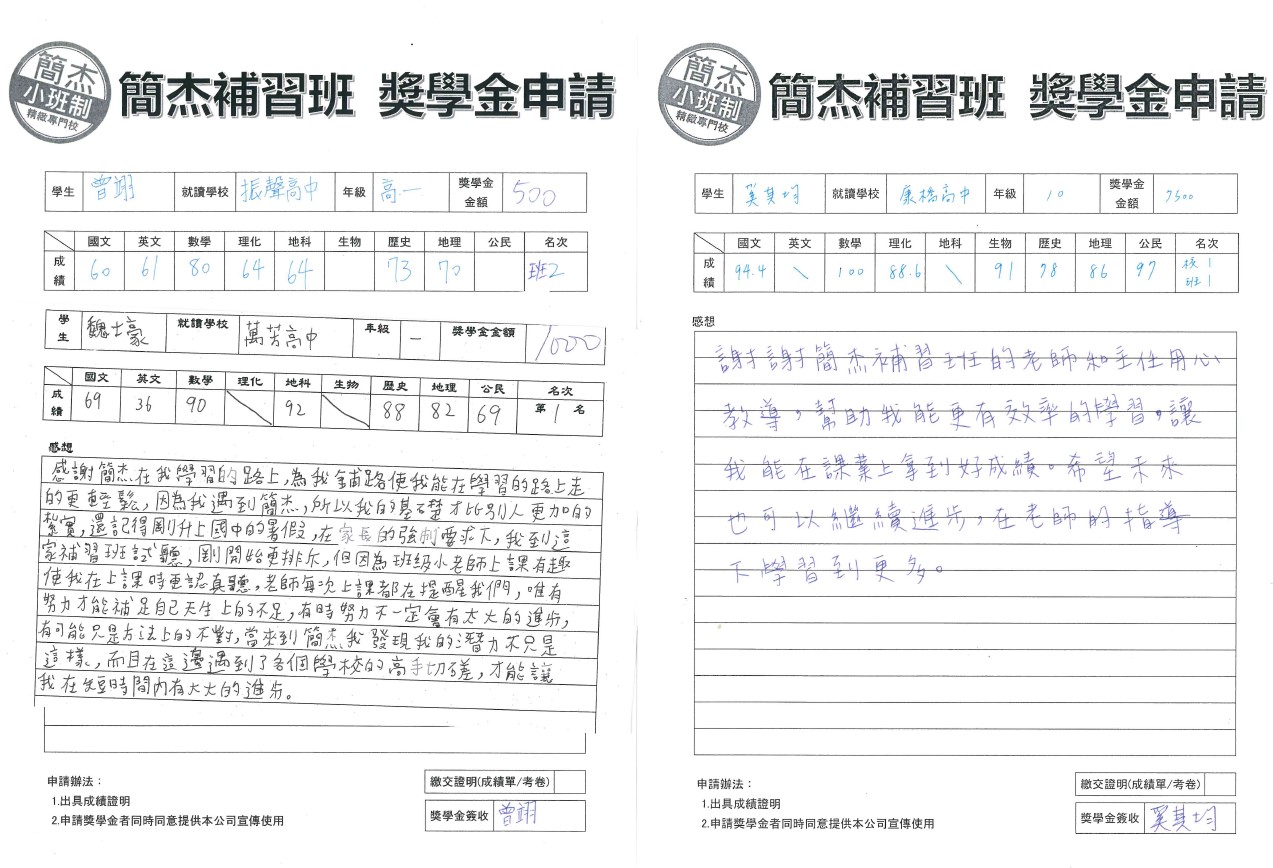 簡杰
小班制
精緻專門校
簡杰補習班 獎學金申請
學生 曾翊 就讀學校 振聲高中 年級 高一 獎學金金額 500
國文 英文 數學 理化 地科 生物 歷史 地理 公民 名次
成績 60 61 80 64 64 73 70 班2
學生 魏士豪 就讀學校 萬芳高中 年級 一 獎學金金額 1000
國文 英文 數學 理化 地科 生物 歷史 地理 公民 名次
成績 69 36 90 92 88 82 69 第1名
感想
感謝簡杰在我學習的路上,為我鋪路使我能在學習的路上走
的更輕鬆,因為我遇到簡杰,所以我的基礎才比別人更加的
紮實,還記得剛升上國中的暑假,在家長的強制要求下,我到這
家補習班試聽,剛開始更排斥,但因為班級小老師上課有趣
使我在上課時更認真聽,老師每次上課都在提醒我們,唯有
努力才能補足自己天生上的不足,有時努力不一定會有太大的進步,
有可能只是方法上的不對,當來到簡杰我發現我的潛力不只是
這樣,而且在這邊遇到了各個學校的高手切磋,才能讓
我在短時間內有大大的進步。
申請辦法：
1.出具成績證明
2.申請獎學金者同時同意提供本公司宣傳使用
繳交證明(成績單/考卷)
獎學金簽收 曾翊
簡杰
小班制
精緻專門校
簡杰補習班 獎學金申請
學生 奚其均 就讀學校 康橋高中 年級 10 獎學金金額 7500
國文 英文 數學 理化 地科 生物 歷史 地理 公民 名次
成績 94.4 \ 100 88.6 \ 91 98 86 97 校1 班1
感想
謝謝簡杰補習班的老師和主任用心
教導,幫助我能更有效率的學習,讓
我能在課業上拿到好成績。希望未來
也可以繼續進步,在老師的指導
下學習到更多。
申請辦法：
1.出具成績證明
2.申請獎學金者同時同意提供本公司宣傳使用
繳交證明(成績單/考卷)
獎學金簽收 奚其均